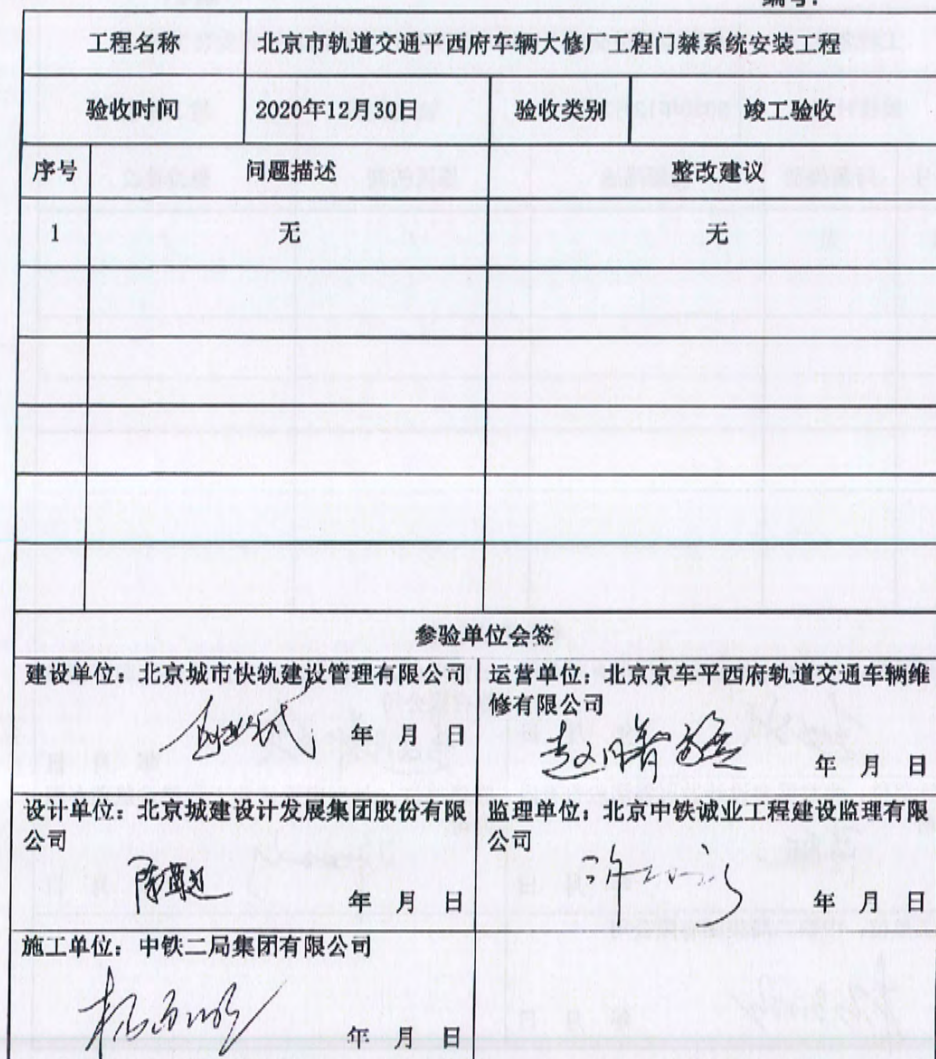 工程名称 北京市轨道交通平西府车辆大修厂工程门禁系统安装工程
验收时间 2020年12月30日 验收类别 竣工验收
序号 问题描述 整改建议
1 无 无
参验单位会签
建设单位：北京城市快轨建设管理有限公司
年 月 日
运营单位：北京京车平西府轨道交通车辆维
修有限公司
年 月 日
设计单位：北京城建设计发展集团股份有限
公司
年 月 日
监理单位：北京中铁诚业工程建设监理有限
公司
年 月 日
施工单位：中铁二局集团有限公司
年 月 日